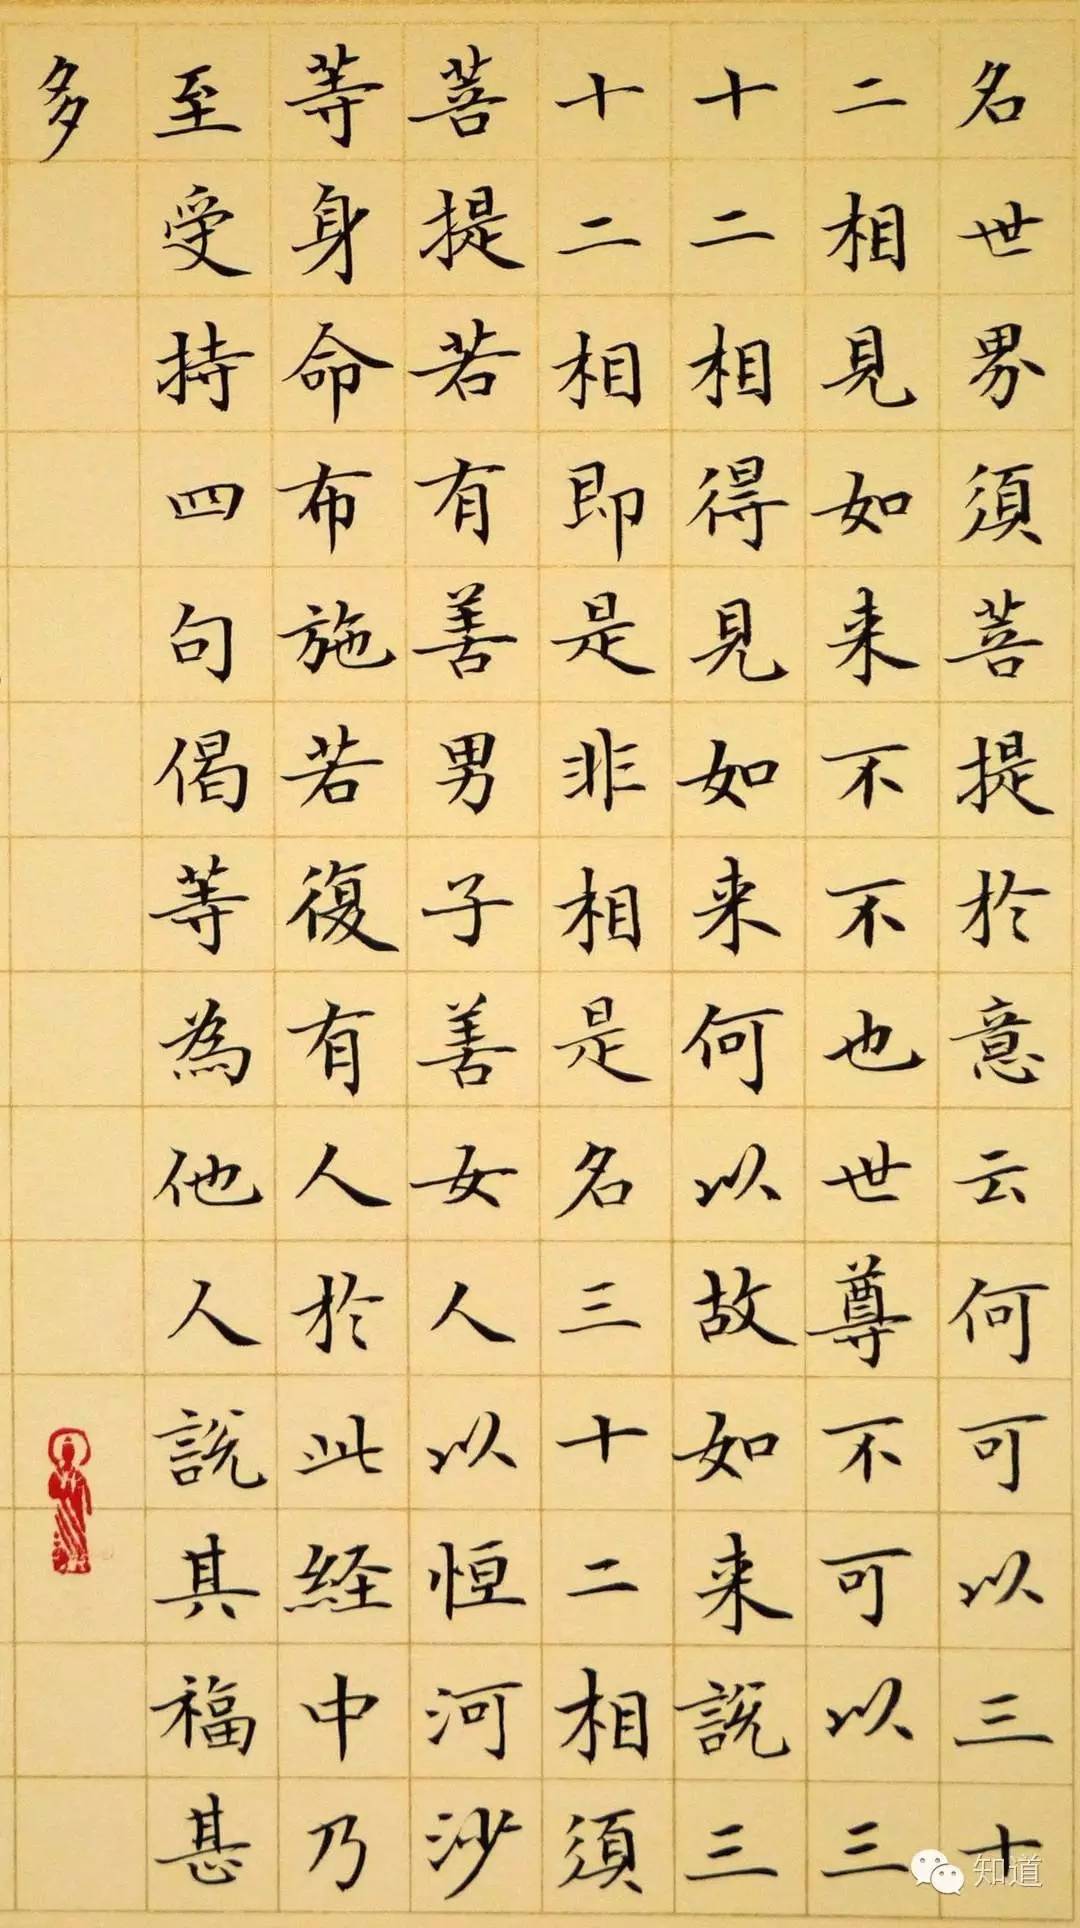 名世界須菩提於意云何可以三十
二相見如来不不也世尊不可以三
十二相得見如来何以故如来説三
十二相即是非相是名三十二相須
菩提若有善男子善女人以恒河沙
等身命布施若復有人於此経中乃
至受持四句偈等為他人説其福甚
多
知道